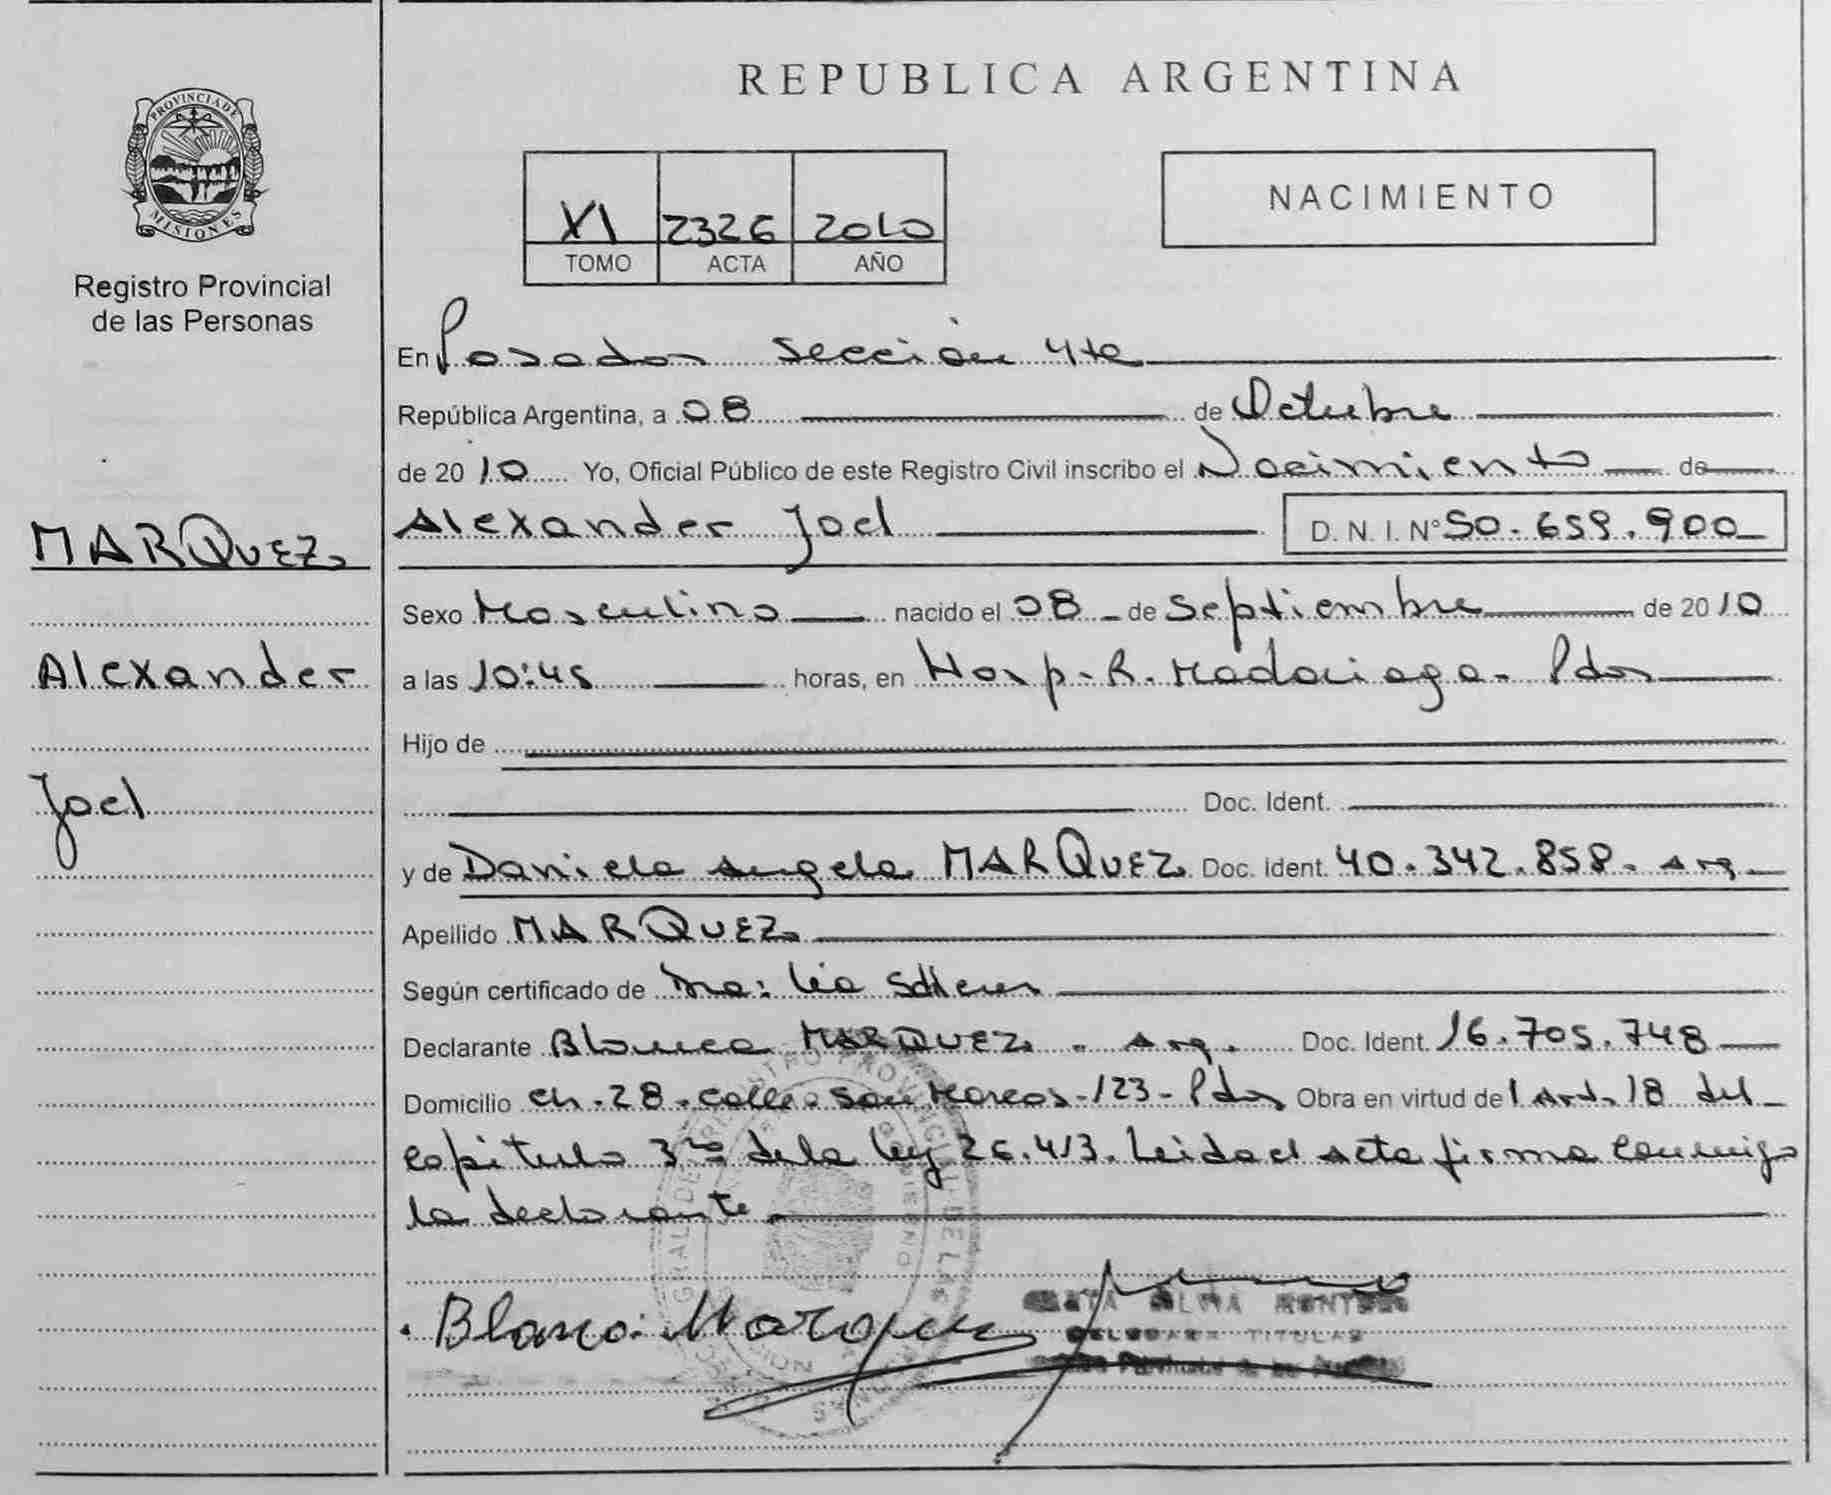 PROVINCIA DE
MISIONES
Registro Provincial
de las Personas
MARQUEZ
Alexander
Joel
REPUBLICA ARGENTINA
XI 2326 2010
TOMO ACTA AÑO
NACIMIENTO
En Posadas Sección 4ta
República Argentina, a 08 de Octubre
de 2010 Yo, Oficial Público de este Registro Civil inscribo el Nacimiento de
Alexander Joel D. N. I. N° 50.659.900
Sexo Masculino nacido el 08 de Septiembre de 2010
a las 10:45 horas, en Hosp. R. Madariaga - Pdas
Hijo de
Doc. Ident.
y de Daniela Angela MARQUEZ Doc. Ident. 40.342.858. Arg
Apellido MARQUEZ
Según certificado de Dra: Lia
Declarante Blanca MARQUEZ - Arg. Doc. Ident. 16.705.748
Domicilio Ch. 28 - calle San Marcos - 123 - Pdas Obra en virtud del Art. 18 del
Capitulo 3ro de la ley 26.413. Leida el acta firma conmigo
la declarante
Blanca Marquez
TITULAR